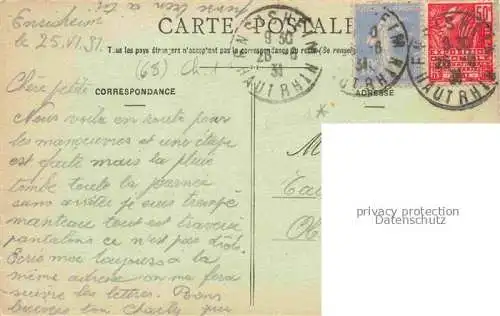 Ensisheim
le 25.VI.31
CARTE POSTALE
Tous les pays étrangers n'acceptent pas la correspondance au recto (Se renseigner
(68)
ENSISHEIM
9 30
26 6
31
HAUT RHIN
50
CORRESPONDANCE
ADRESSE
Chère petite
Nous voila en route pour
les manœuvres et une étape
est faite mais la pluie
tombe toute la journée
sans arrêter je suis trempé
manteau tout est traversé
pantalons ce n'est pas drôle.
Ecris moi toujours à la
même adresse on me fera
suivre les lettres. Bons
baisers ton Charly qui
M
privacy protection
Datenschutz